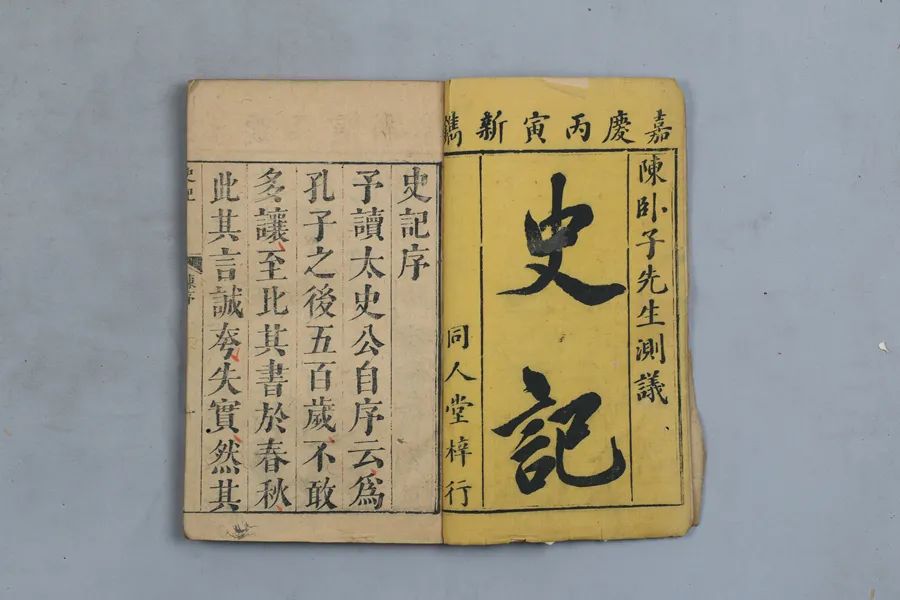 嘉慶丙寅新鐫
陳卧子先生測議
史記
同人堂梓行
史記序
予讀太史公自序云爲
孔子之後五百歲不敢
多讓至比其書於春秋
此其言誠夸失實然其